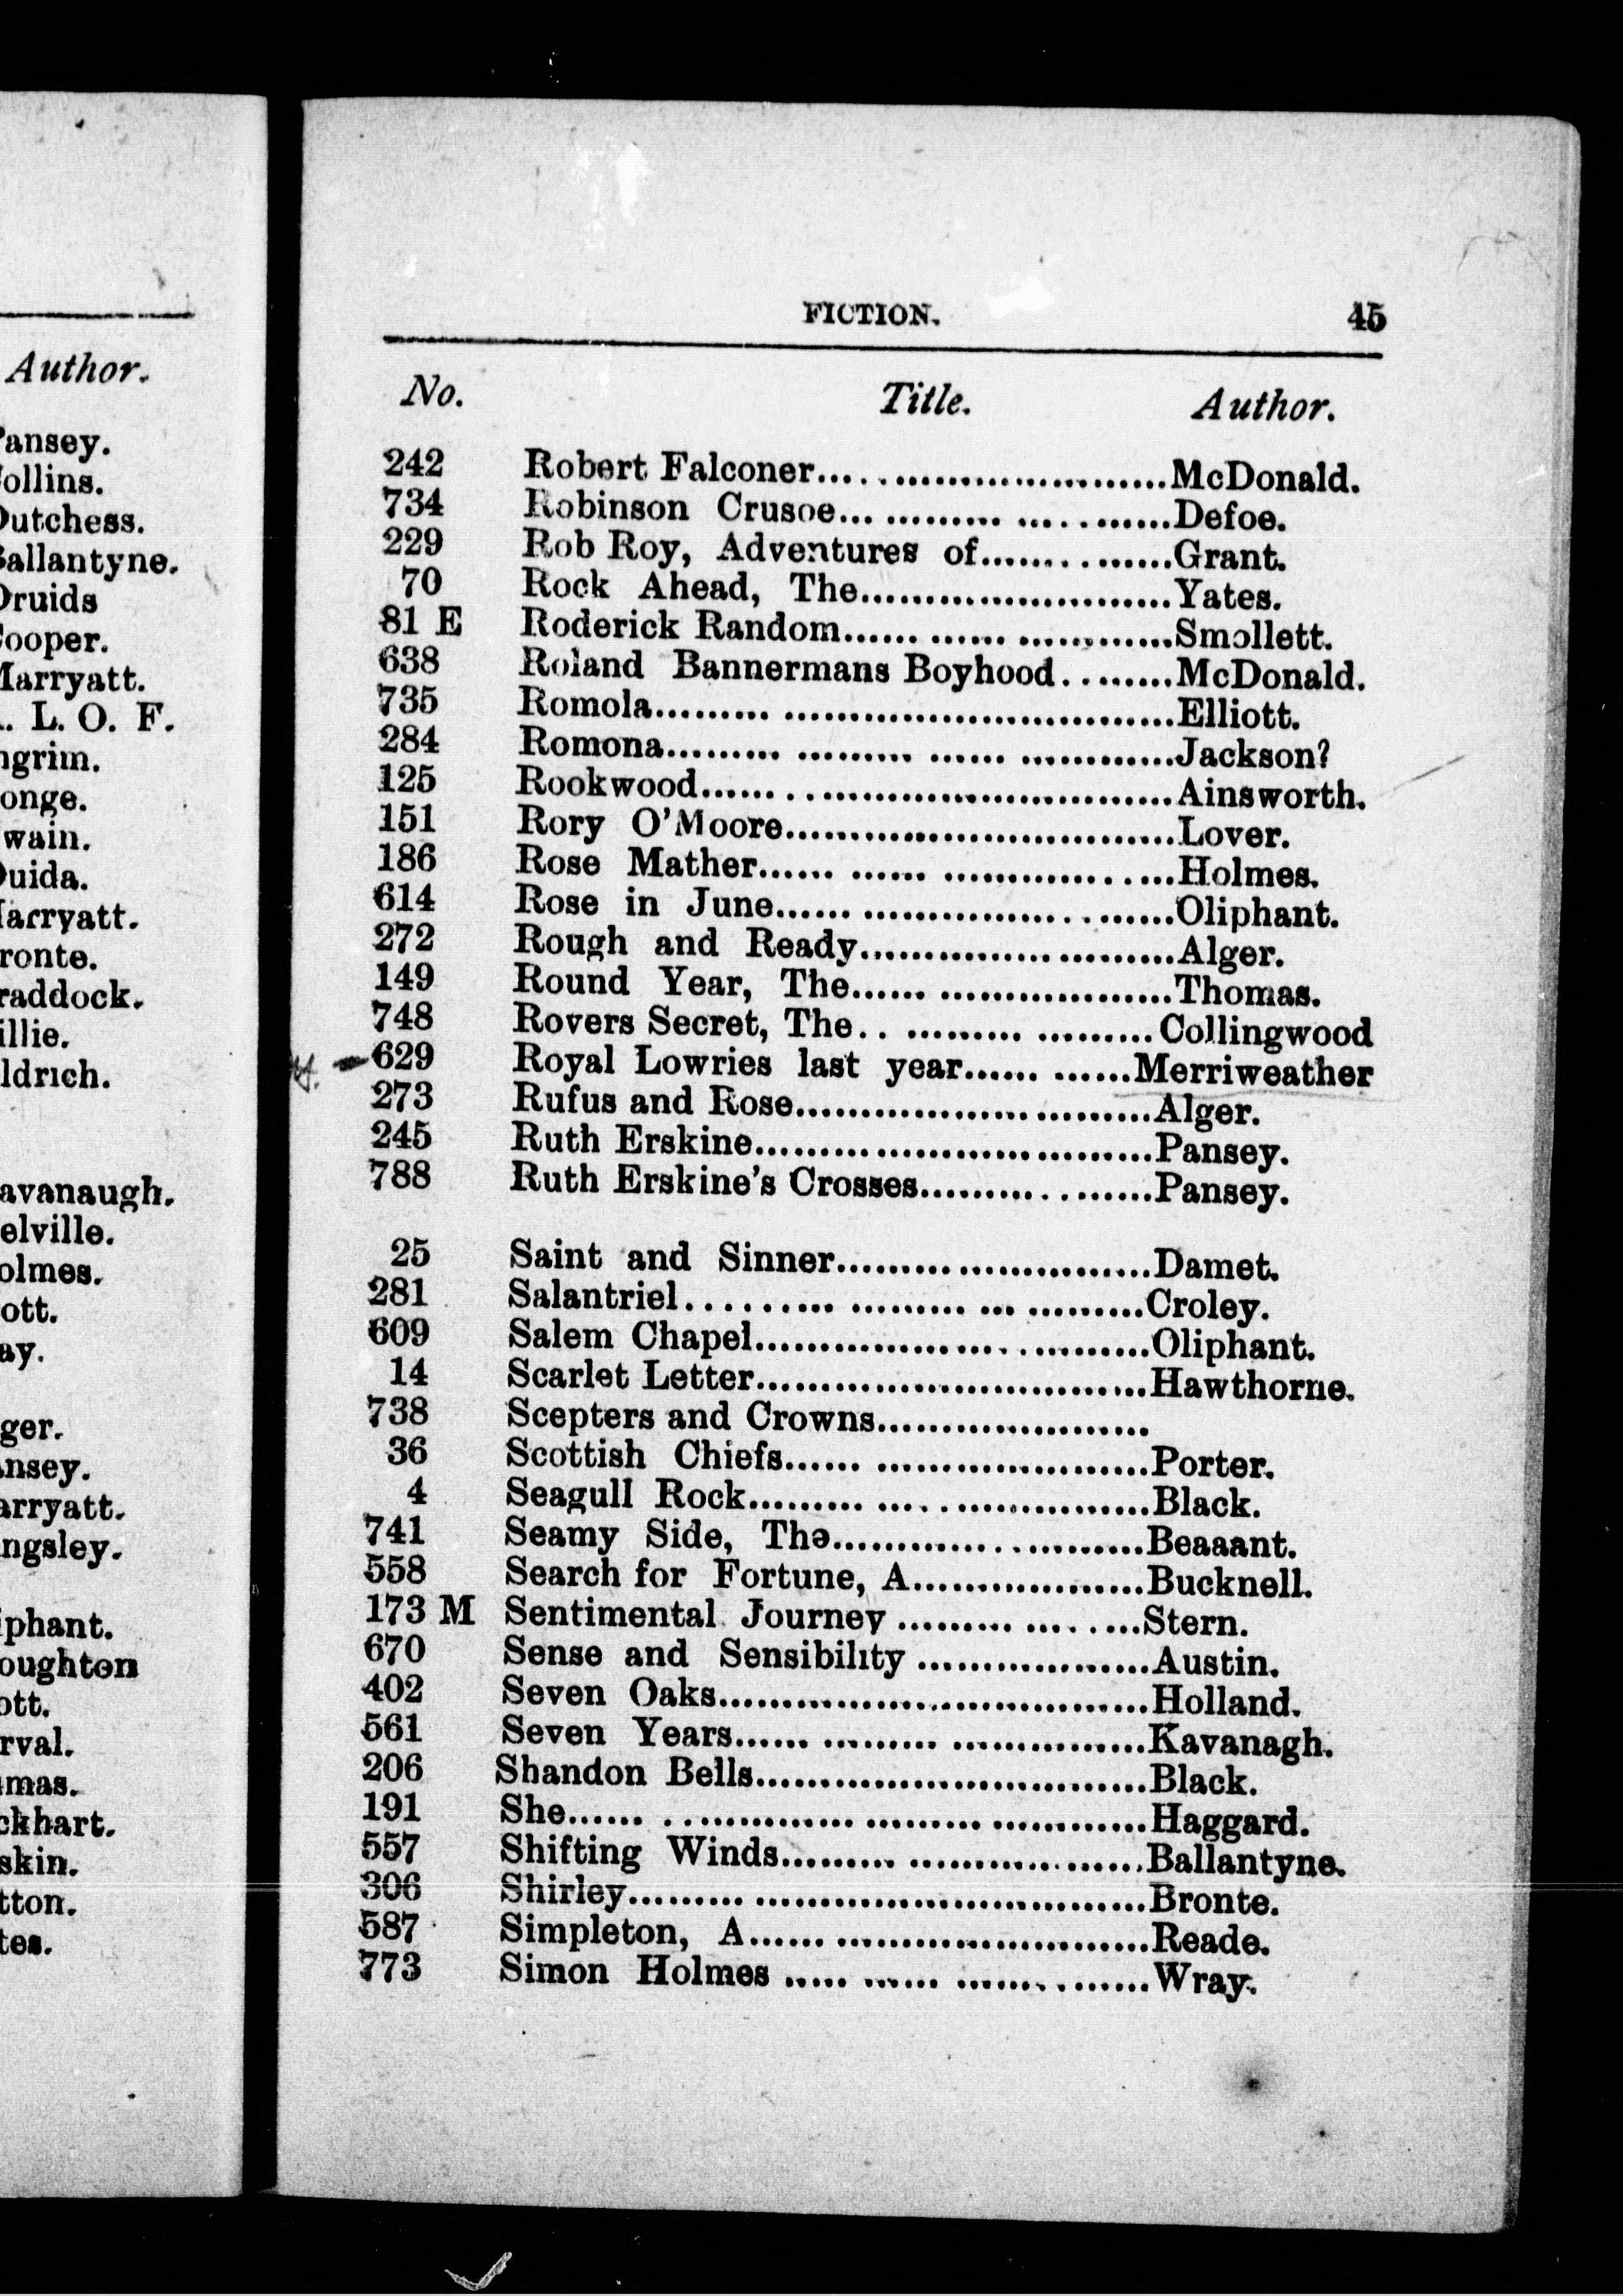 Author.
ansey.
ollins.
utchess.
allantyne.
ruids
ooper.
arryatt.
. L. O. F.
grim.
onge.
wain.
uida.
arryatt.
ronte.
raddock.
illie.
ldrich.
avanaugh.
elville.
olmes.
ott.
ay.
ger.
nsey.
arryatt.
ngsley.
iphant.
oughton
ott.
rval.
mas.
ckhart.
skin.
tton.
tes.
FICTION. 45
No. Title. Author.
242 Robert Falconer........................McDonald.
734 Robinson Crusoe........................Defoe.
229 Rob Roy, Adventures of..............Grant.
70 Rock Ahead, The........................Yates.
81 E Roderick Random........................Smollett.
638 Roland Bannermans Boyhood.........McDonald.
735 Romola........................Elliott.
284 Romona........................Jackson?
125 Rookwood........................Ainsworth.
151 Rory O'Moore........................Lover.
186 Rose Mather........................Holmes.
614 Rose in June........................Oliphant.
272 Rough and Ready........................Alger.
149 Round Year, The........................Thomas.
748 Rovers Secret, The....................Collingwood
629 Royal Lowries last year............Merriweather
273 Rufus and Rose........................Alger.
245 Ruth Erskine........................Pansey.
788 Ruth Erskine's Crosses..................Pansey.
25 Saint and Sinner........................Damet.
281 Salantriel........................Croley.
609 Salem Chapel........................Oliphant.
14 Scarlet Letter........................Hawthorne.
738 Scepters and Crowns.....................
36 Scottish Chiefs........................Porter.
4 Seagull Rock........................Black.
741 Seamy Side, The........................Beaaant.
558 Search for Fortune, A..................Bucknell.
173 M Sentimental Journey ..................Stern.
670 Sense and Sensibility ..................Austin.
402 Seven Oaks........................Holland.
561 Seven Years........................Kavanagh.
206 Shandon Bells........................Black.
191 She........................Haggard.
557 Shifting Winds........................Ballantyne.
306 Shirley........................Bronte.
587 Simpleton, A........................Reade.
773 Simon Holmes ........................Wray.